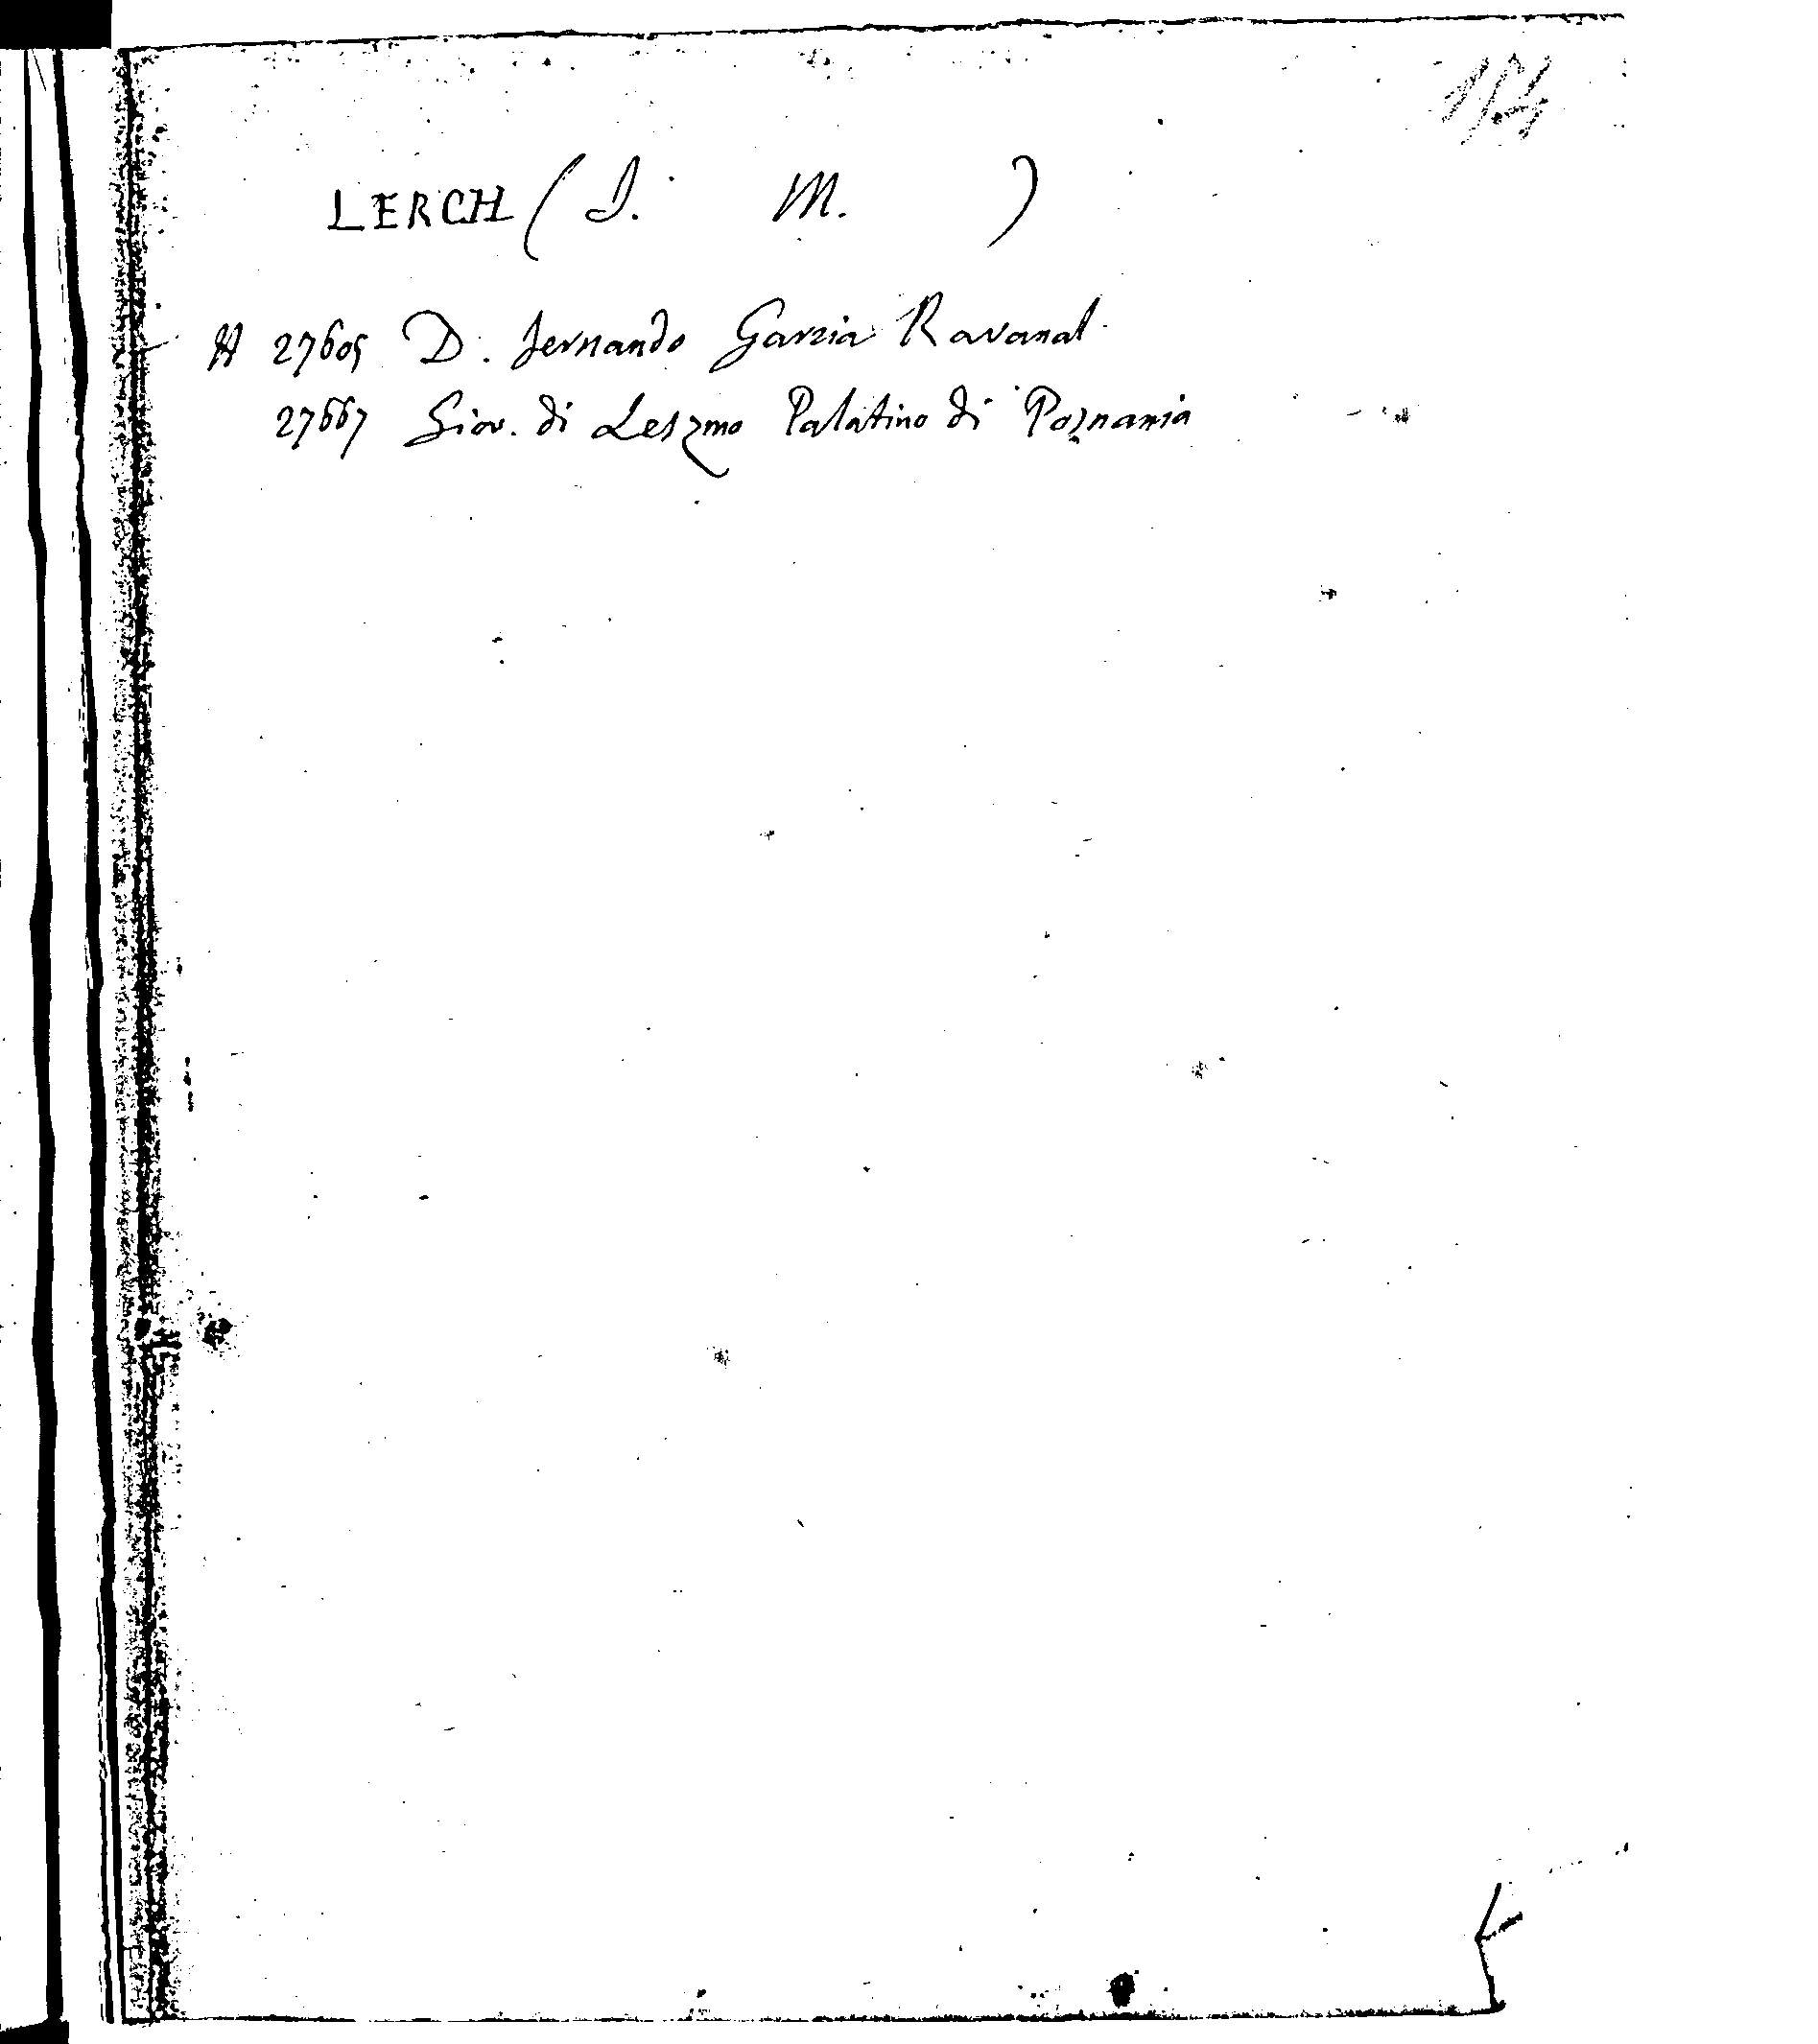 154
LERCH (J. M. )
H 27605 D. Fernando Garzia Ravanal
27667 Giov. di Leszmo Palatino di Poznania